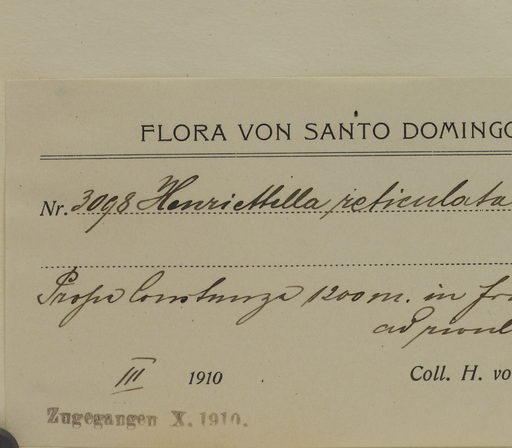 FLORA VON SANTO DOMINGO
Nr. 3098 Henriettella reticulata
Prope Constanza 1200 m. in
ad
III 1910 Coll. H. vo
Zugegangen X. 1910.